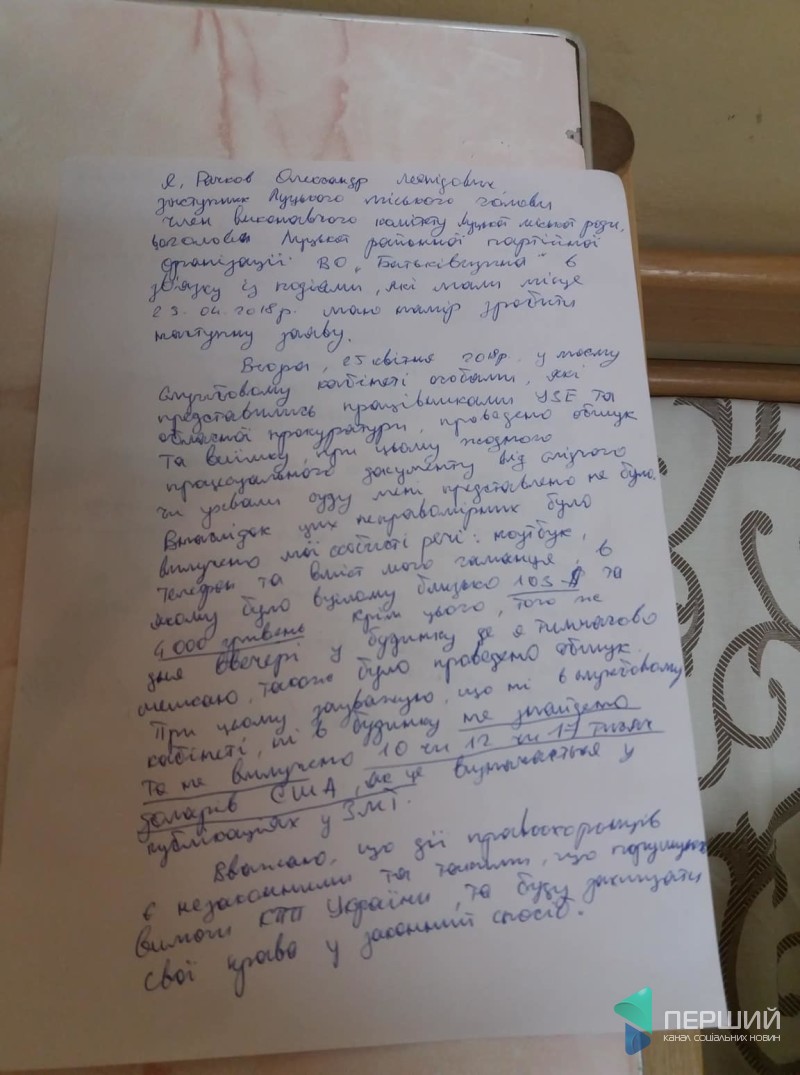 Я, Рачков Олександр Леонідович,
заступник Луцького міського голови
член виконавчого комітету Луцької міської ради,
голова Луцької районної партійної
організації ВО „Батьківщина" в
зв'язку із подіями, які мали місце
25.04.2018р. маю намір зробити
наступну заяву.
Вчора, 25 квітня 2018р. у моєму
службовому кабінеті особами, які
представились працівниками УЗЕ та
обласної прокуратури, проведено обшук
та виїмку, при цьому жодного
процесуального документу від слідчого
чи ухвали суду мені представлено не було.
Внаслідок цих неправомірних було
вилучено мої особисті речі: ноутбук,
телефон та вміст мого гаманця, в
якому було вцілому близько 103 $ та
4000 гривень. Крім цього, того ж
дня ввечері у будинку де я тимчасово
мешкаю, також було проведено обшук.
При цьому зауважую, що ні в службовому
кабінеті, ні в будинку не знайдено
та не вилучено 10 чи 12 чи 17 тисяч
доларів США, як це визначається у
публікаціях у ЗМІ.
Вважаю, що дії правоохоронців
є незаконними та такими, що порушують
вимоги КПП України, та буду захищати
свої права у законний спосіб.
ПЕРШИЙ
КАНАЛ СОЦІАЛЬНИХ НОВИН